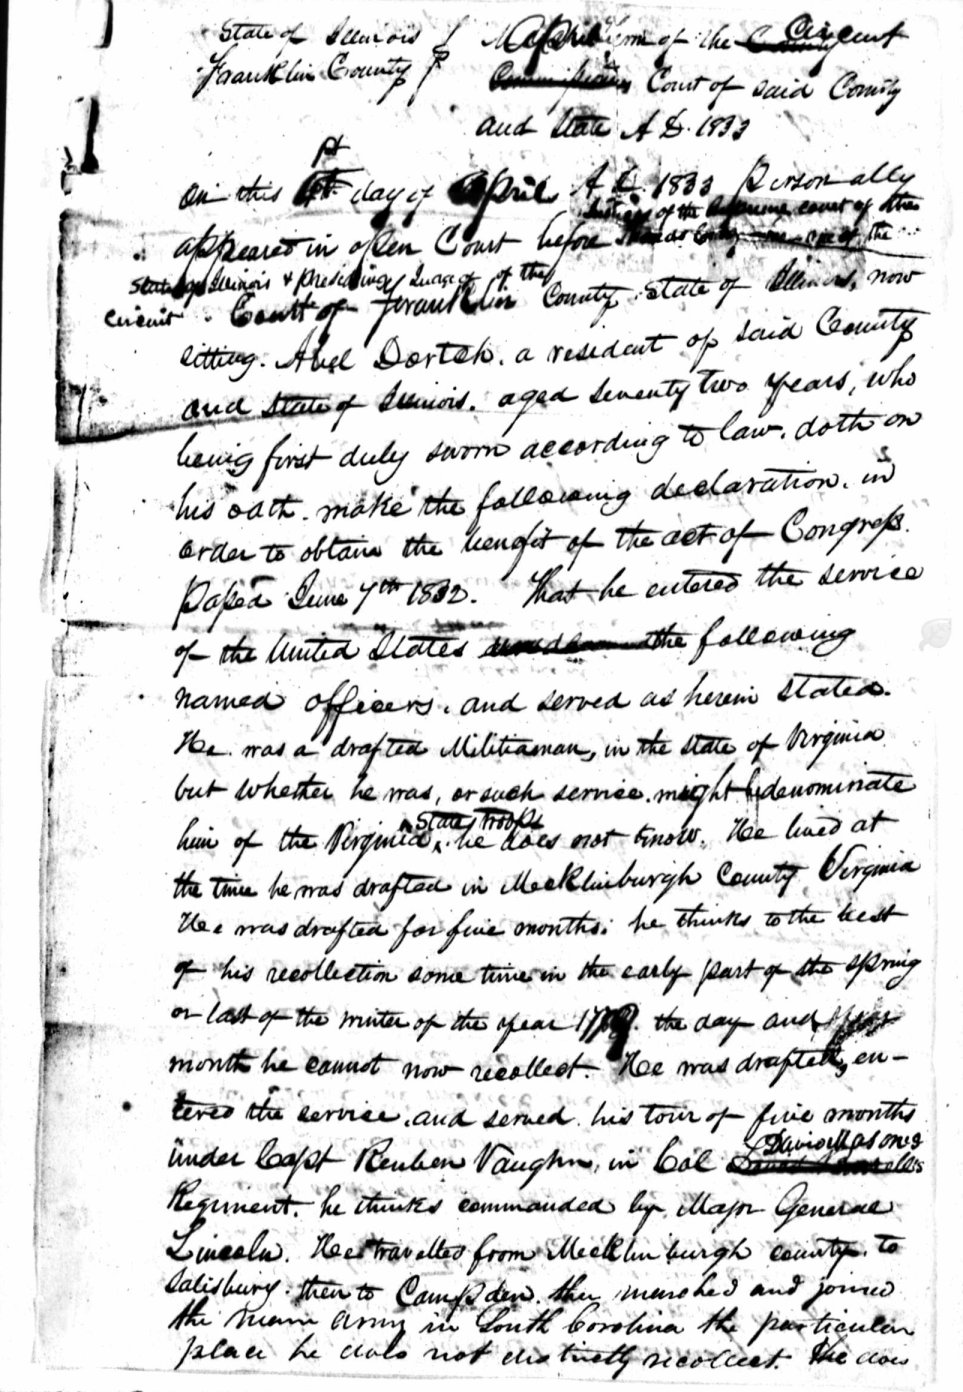 State of Illinois } April Term of the County Circuit
Franklin County } Commissioners Court of said County
and State A D. 1833
On this 1st day of April A D. 1833 Personally
Justices of the Supreme court of the
appeared in open Court before Thomas one of the
State of Illinois & presiding Judge of the
Circuit Court of Franklin County State of Illinois, now
sitting. Abel Dortch. a resident of said County
and State of Illinois. aged seventy two years, who
being first duly sworn according to law. doth on
his oath. make the following declaration. in
order to obtain the benefit of the act of Congress.
Passed June 7th 1832. That he entered the service
of the United States under the following
named officers. and served as herein stated.
He was a drafted Militiaman, in the state of Virginia
but whether he was, or such service might be denominate
State Troops
him of the Virginia he does not know. He lived at
the time he was drafted in Mecklinburgh County Virginia
He was drafted for five months: he thinks to the best
of his recollection some time in the early part of the spring
or last of the winter of the year the day and
month he cannot now recollect. He was drafted, en-
tered the service, and served his tour of five months
David Masons
under Capt Reuben Vaughn, in Col
Regiment. he thinks commanded by Major General
Lincoln. He travelled from Mecklinburgh county. to
Salisbury. then to Campden. then marched and joined
the main army in South Carolina the particular
place he does not distinctly recollect. He does